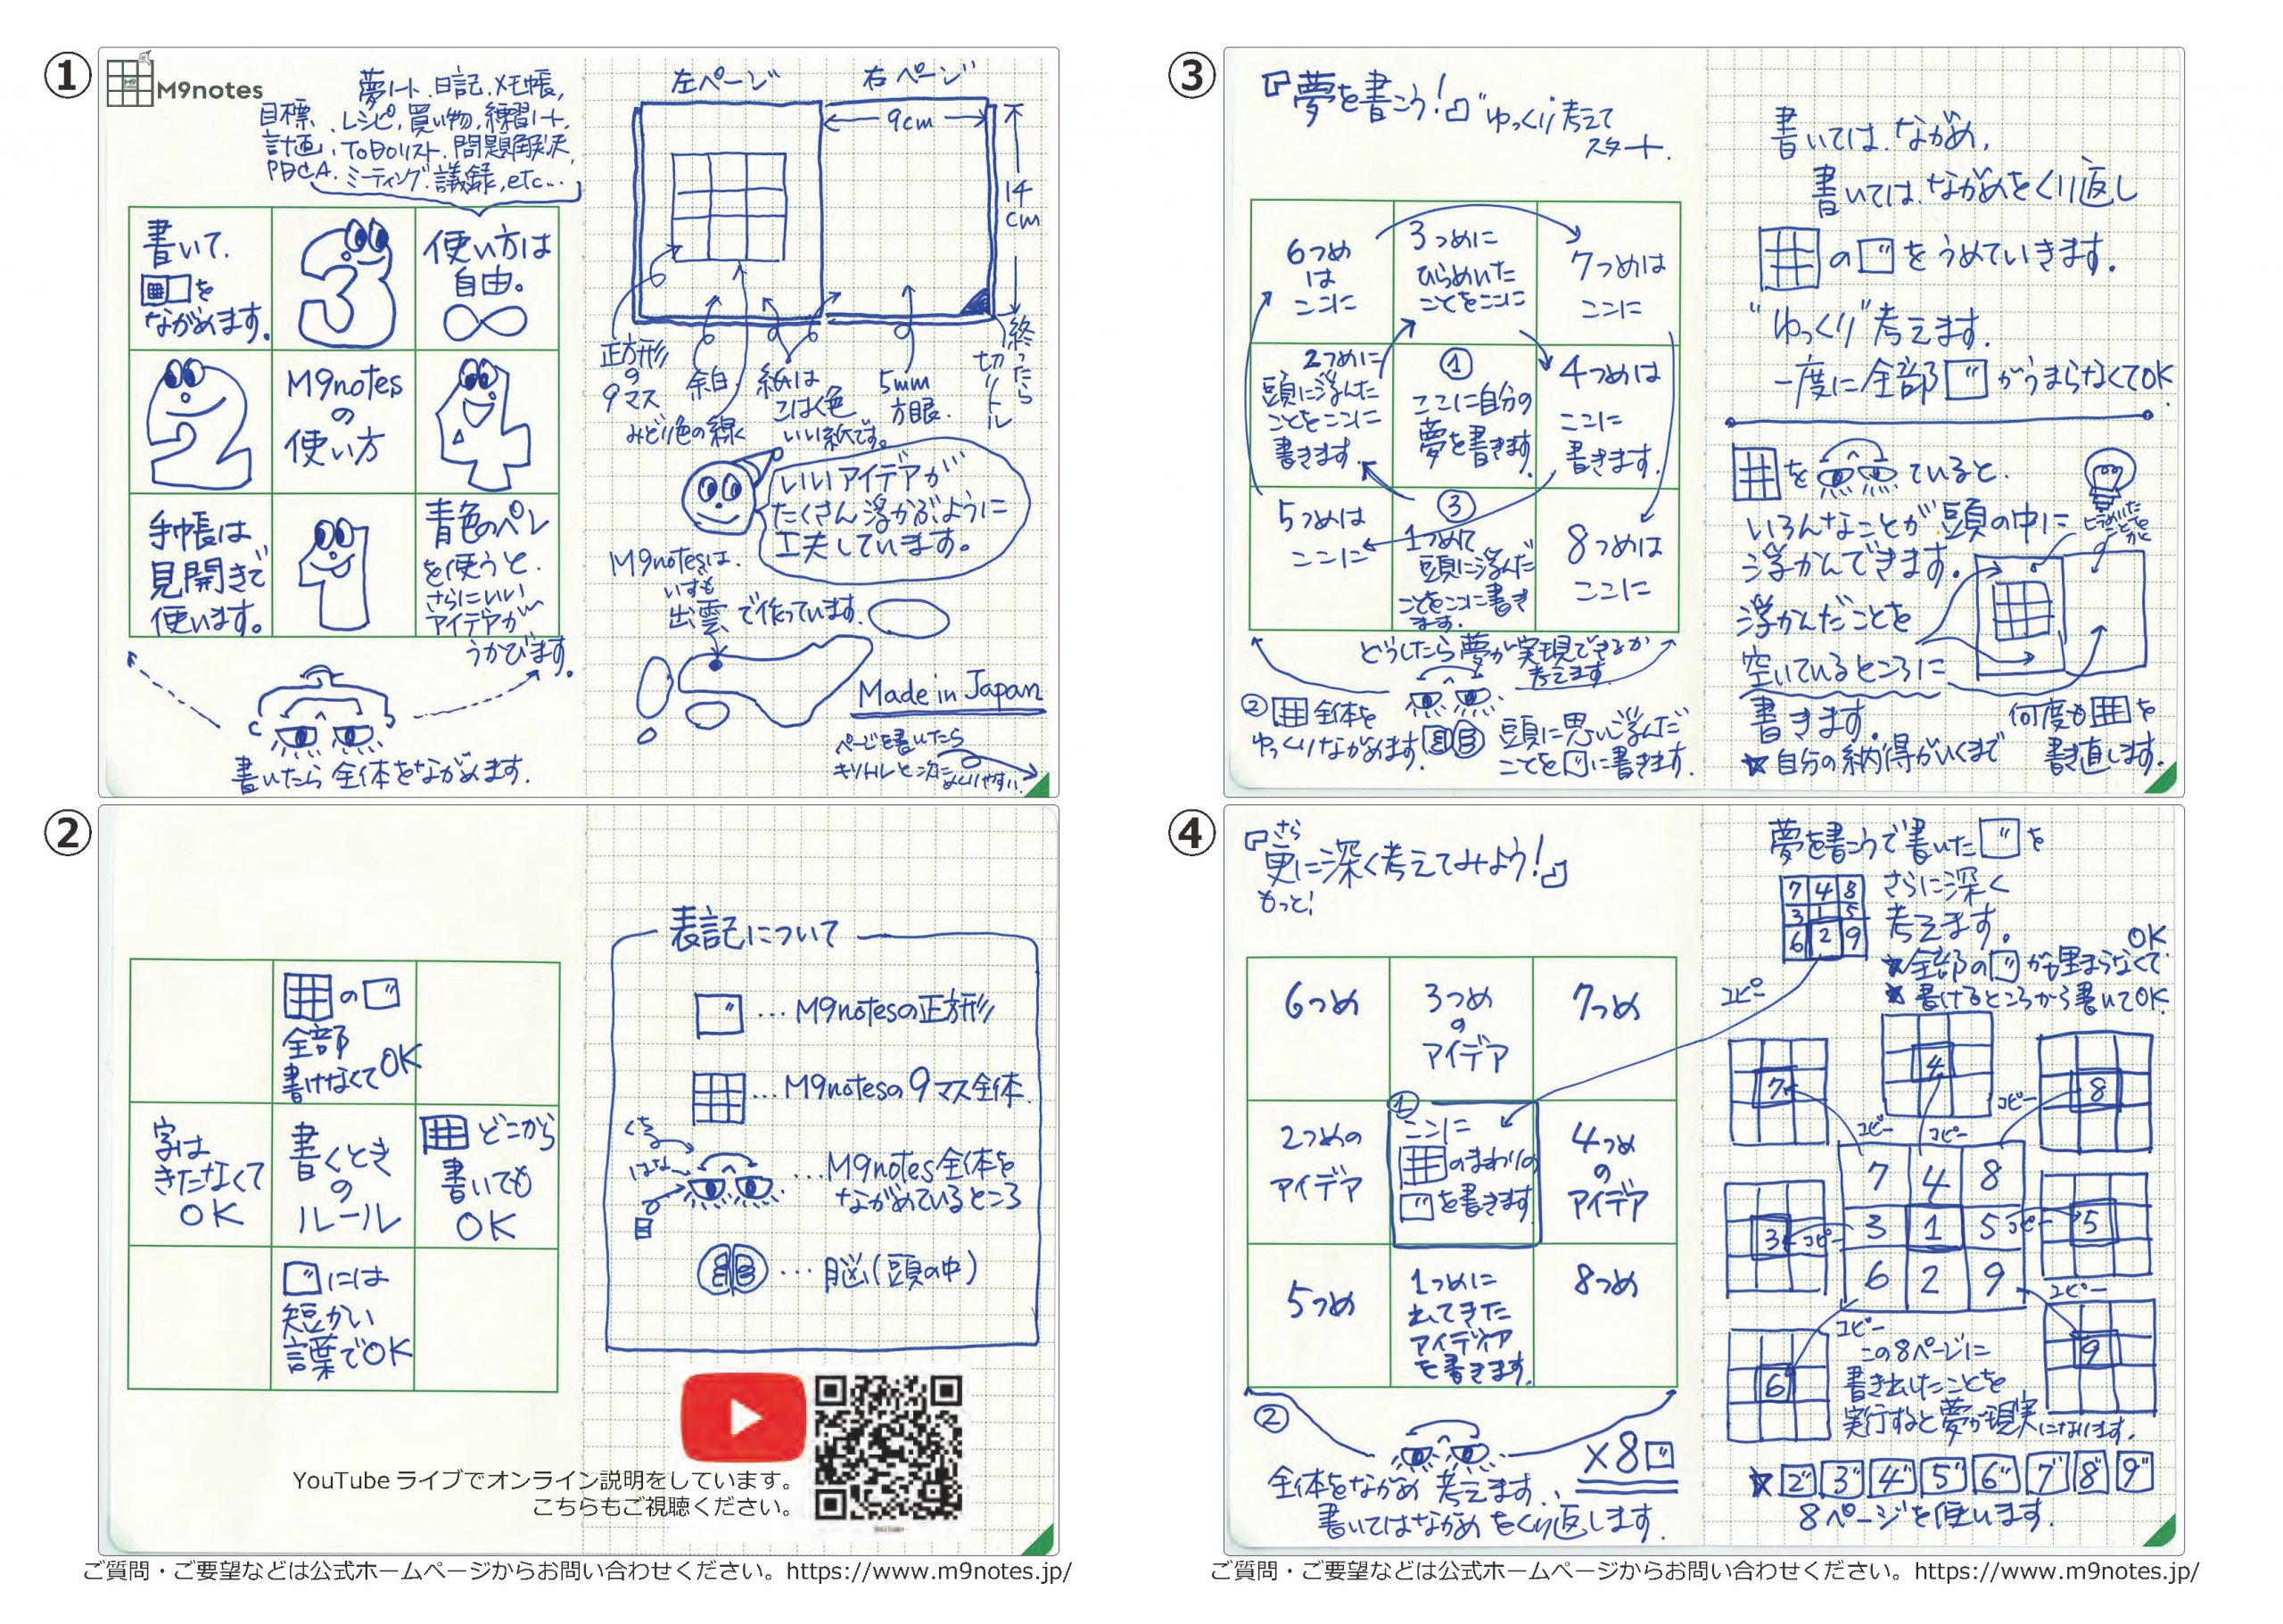 ①
M9notes
夢ノート、日記、メモ帳、
目標、レシピ、買い物、練習ノート、
計画、ToDoリスト、問題解決、
PDCA、ミーティング、議録、etc…
書いて、
を
ながめます。
3
使い方は
自由。
∞
2
M9notes
の
使い方
4
手帳は
見開きで
使います。
1
青色のペン
を使うと、
さらにいい
アイデアが
うかびます。
書いたら全体をながめます。
左ページ
右ページ
9cm
14
cm
正方形
9マス
余白
みどり色の線
紙は
こはく色
いい紙です。
5mm
方眼
終ったら
切りトル
いいアイデアが
たくさん浮かぶように
工夫しています。
M9notesは、
いずも
出雲で作っています。
Made in Japan
ページを書いたら
キリトレと次に
めくりやすい。
②
の
全部
書けなくてOK
字は
きたなくて
OK
書くとき
の
ルール
どこから
書いても
OK
には
短かい
言葉でOK
表記について
…M9notesの正方形
…M9notesの9マス全体
はな
目
…M9notes全体を
ながめているところ
…脳(頭の中)
YouTube ライブでオンライン説明をしています。
こちらもご視聴ください。
ご質問・ご要望などは公式ホームページからお問い合わせください。https://www.m9notes.jp/
③
『夢を書こう!』“ゆっくり考えて
スタート.
6つめ
は
ここに
3つめに
ひらめいた
ことをここに
7つめは
ここに
2つめに
頭に浮んだ
ことをここに
書きます。
①
ここに自分の
夢を書きます
4つめは
ここに
書きます.
5つめは
ここに
③
1つめに
頭に浮んだ
ことをここに書き
ます.
8つめは
ここに
どうしたら夢が実現できるか
考えます.
②全体を
ゆっくりながめます.
頭に思い浮んだ
ことをに書きます.
書いては、ながめ、
書いては、ながめをくり返し
のをうめていきます.
“ゆっくり”考えます.
一度に全部がうまらなくてOK
をていると、
いろんなことが頭の中に
浮かんできます.
浮かんだことを
空いているところに
書きます.
何度もを
書き直します.
★自分の納得がいくまで
④
さら
『更に深く考えてみよう!』
もっと!
6つめ
3つめ
の
アイデア
7つめ
2つめの
アイデア
①
ここに
のまわりの
を書きます
4つめ
の
アイデア
5つめ
1つめに
出てきた
アイディア
を書きます.
8つめ
②
×8
全体をながめ 考えます.
書いてはながめをくり返します.
夢を書こうで書いたを
7 4 8
3 1 5
6 2 9
さらに深く
考えます。
★全部のが埋まらなくて
OK
★書けるところから書いてOK
コピー
7
4
8
コピー
コピー
コピー
7 4 8
3
コピー
3 1 5
コピー
5
6 2 9
コピー
コピー
6
9
この8ページに
書き出したことを
実行すると夢が現実になります.
★ 2 3 4 5 6 7 8 9
8ページを使います.
ご質問・ご要望などは公式ホームページからお問い合わせください。https://www.m9notes.jp/